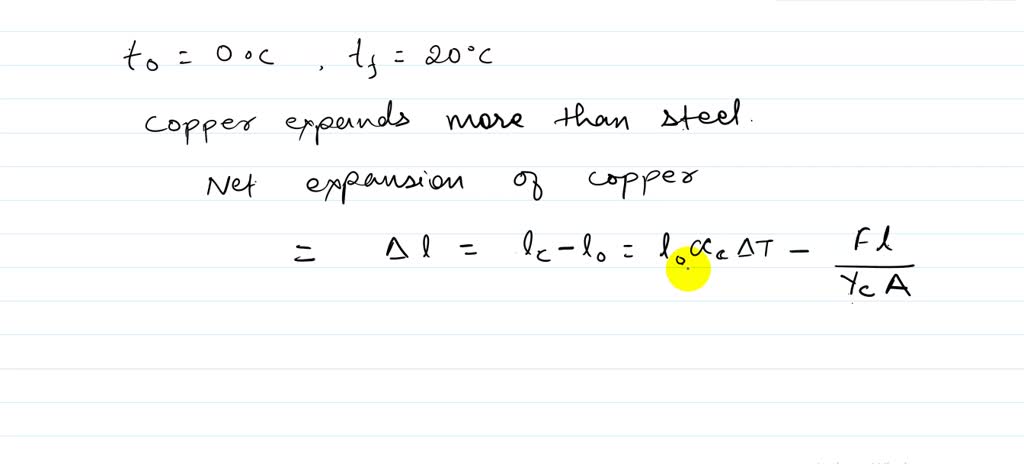 t₀ = 0°C , t_f = 20°C
copper expands more than steel.
Net expansion of copper
= Δl = l_c - l₀ = l₀ α_c ΔT - Fl / Y_c A